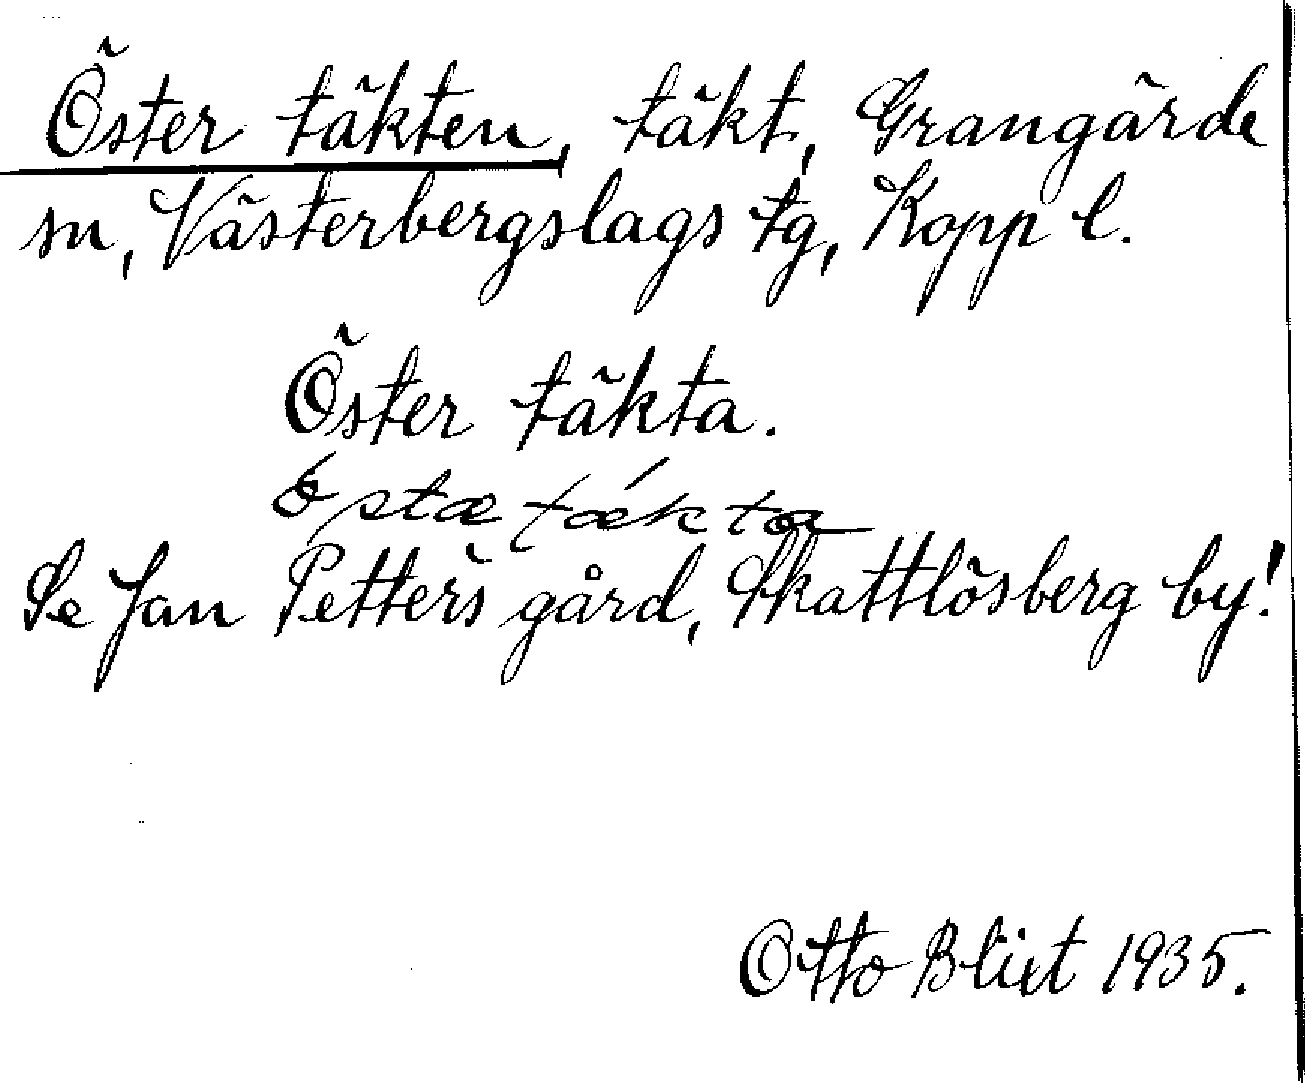 Öster täkten, täkt, Grangärde
sn, Västerbergslags tg, Kopp l.
Öster täkta.
ö́stæ tǽkta
Se Jan Petters gård, Skattlösberg by!
Otto Blixt 1935.